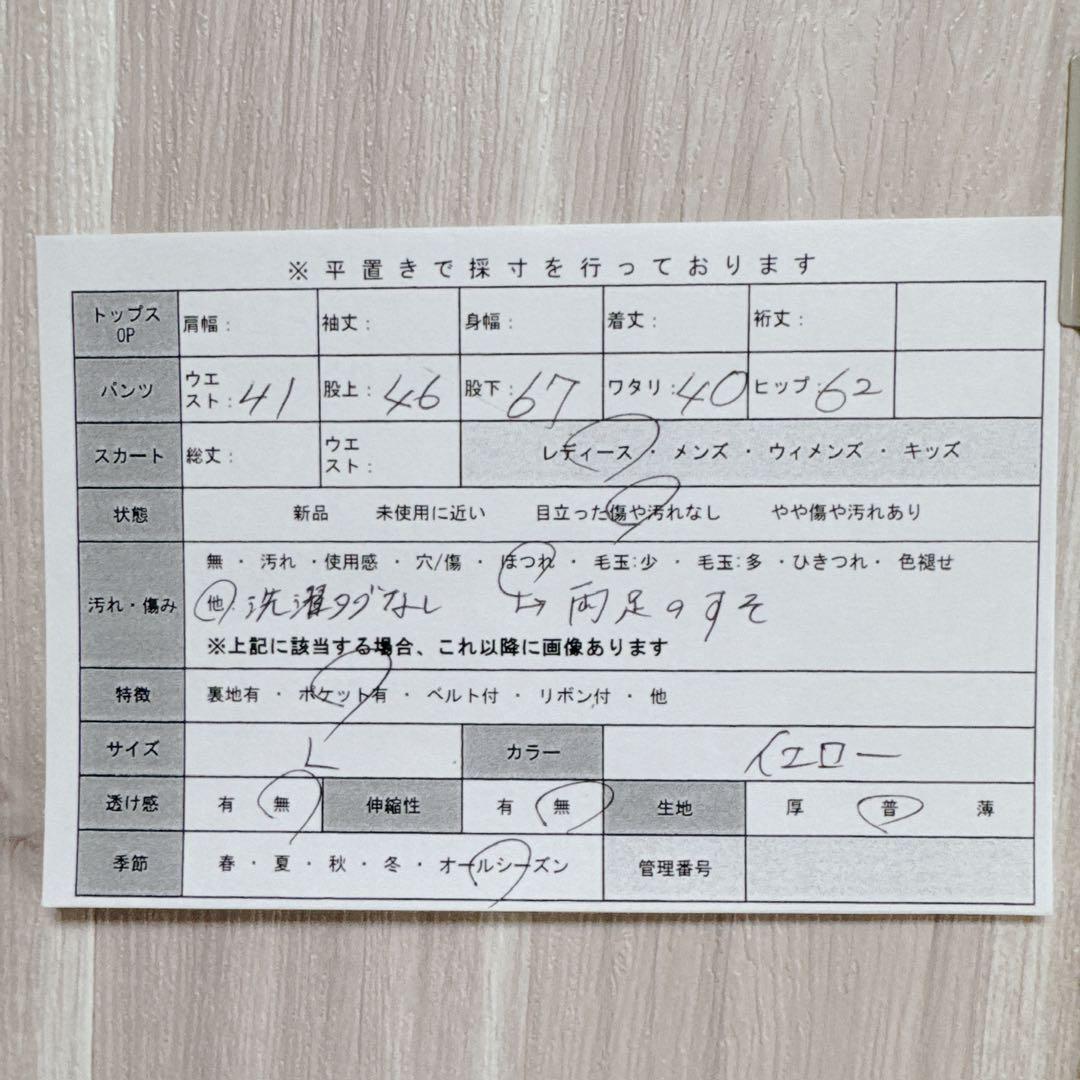 ※平置きで採寸を行っております
トップス OP 肩幅： 袖丈： 身幅： 着丈： 裄丈：
パンツ ウエスト：41 股上：46 股下：67 ワタリ：40 ヒップ：62
スカート 総丈： ウエスト： レディース ・ メンズ ・ ウィメンズ ・ キッズ
状態 新品 未使用に近い 目立った傷や汚れなし やや傷や汚れあり
汚れ・傷み 無 ・ 汚れ ・使用感 ・ 穴/傷 ・ ほつれ ・ 毛玉:少 ・ 毛玉:多 ・ひきつれ・ 色褪せ
他：洗濯タグなし ↳ 両足のすそ
※上記に該当する場合、これ以降に画像あります
特徴 裏地有 ・ ポケット有 ・ ベルト付 ・ リボン付 ・ 他
サイズ L カラー イエロー
透け感 有 無 伸縮性 有 無 生地 厚 普 薄
季節 春 ・ 夏 ・ 秋 ・ 冬 ・ オールシーズン 管理番号